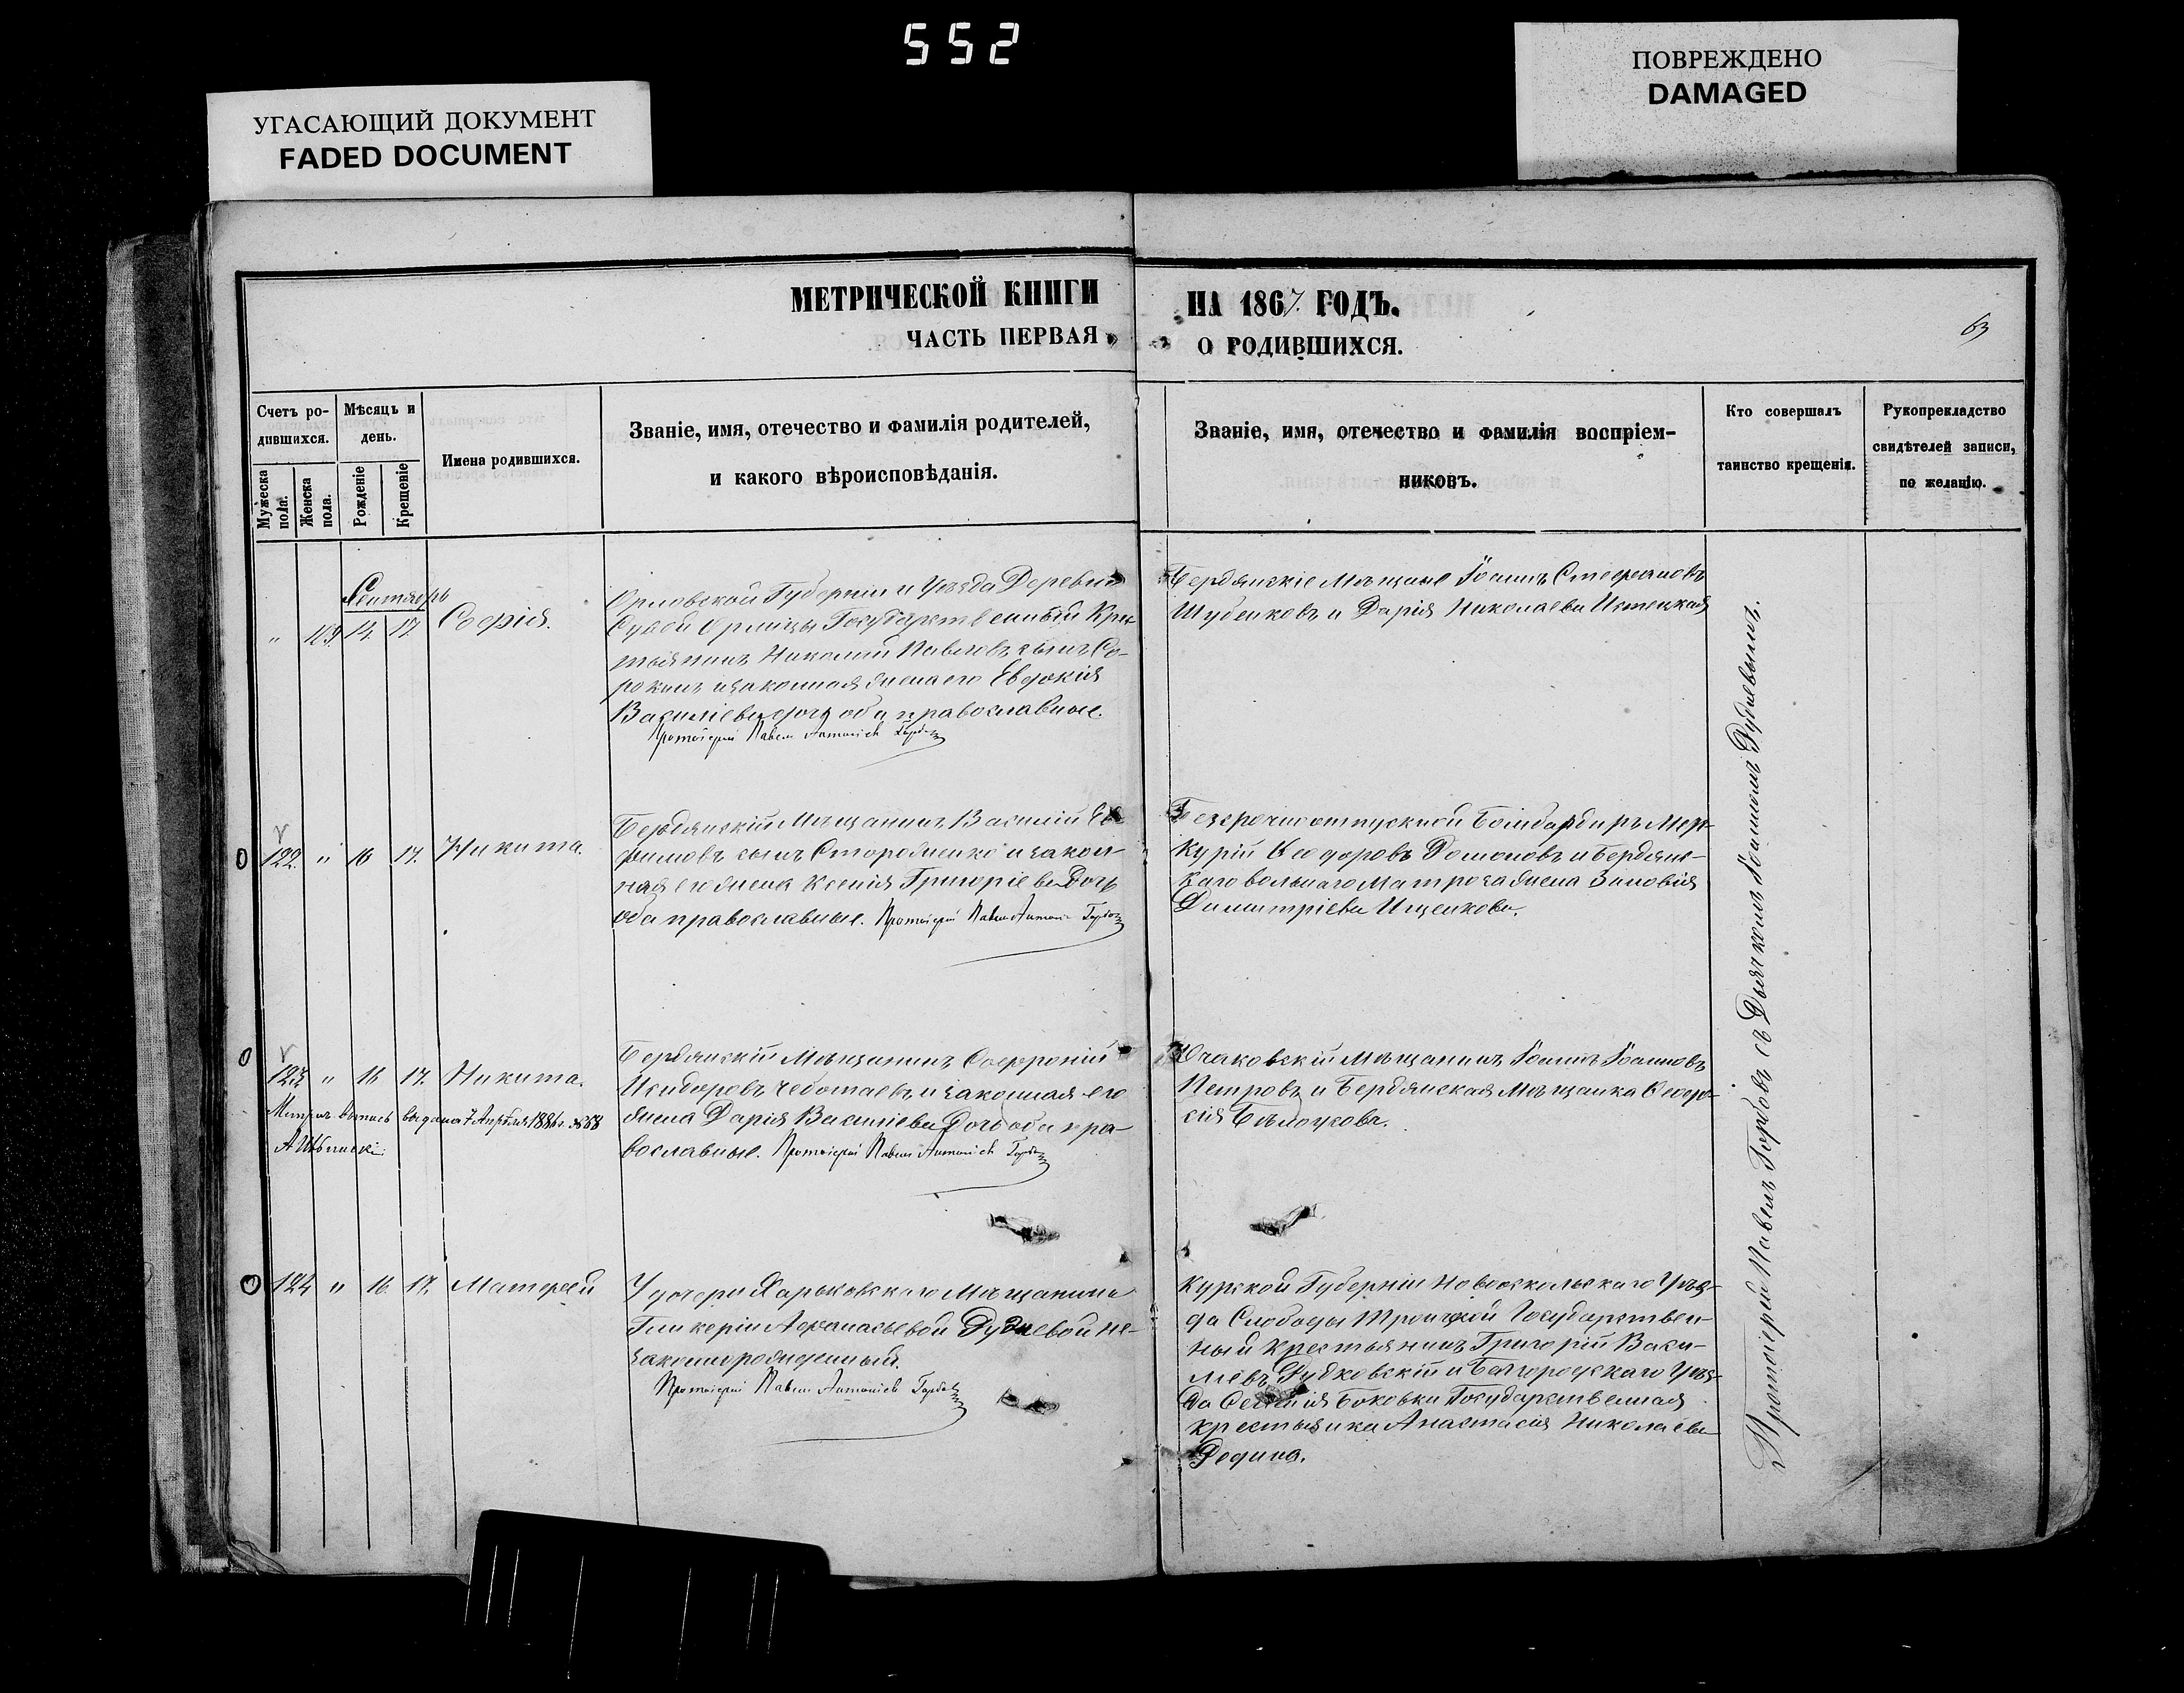 552
УГАСАЮЩИЙ ДОКУМЕНТ
FADED DOCUMENT
ПОВРЕЖДЕНО
DAMAGED
МЕТРИЧЕСКОЙ КНИГИ НА 1867. ГОДЪ.
ЧАСТЬ ПЕРВАЯ О РОДИВШИХСЯ.
63
Счетъ ро-
дившихся.
Мужеска пола.
Женска пола.
Мѣсяцъ и
день.
Рожденіе
Крещеніе
Имена родившихся.
Званіе, имя, отечество и фамилія родителей,
и какого вѣроисповѣданія.
Званіе, имя, отечество и фамилія воспріем-
никовъ.
Кто совершалъ
таинство крещенія.
Рукоприкладство
свидѣтелей записи,
по желанію.
Сентябрь
" 109 14 17 Софія.
Орловской Губерніи и Уѣзда Деревни
Сухой Орлицы Государственный Крес-
тьянинъ Николай Павловъ сынъ Со-
рокинъ и законная жена его Евдокія
Василіева дочь оба православные.
Протоіерей Павелъ Антоніевъ Горбовъ
Бердянскіе Мѣщане Іоаннъ Стефановъ
Шубенковъ и Дарія Николаева
122. " 16 17. Никита.
Бердянскій Мѣщанинъ Василій Ев-
фимовъ сынъ Стороженко и закон-
ная его жена Ксенія Григоріева Дочь
оба православные. Протоіерей Павелъ Антоніевъ Горбовъ
Безсрочноотпускной Бомбардиръ Мер-
курій Ѳеодоровъ и Бердянс-
каго вольнаго Матроса жена Зиновія
Димитріева Ищенкова.
123 " 16 17. Никита.
Метрич. выпись выдана 7 Апрѣля 1886 г. № 58
Бердянскій Мѣщанинъ Софроній
Исидоровъ Чеботаевъ и законная его
жена Дарія Василіева Дочь оба пра-
вославные. Протоіерей Павелъ Антоніевъ Горбовъ
Очаковскій Мѣщанинъ Іоаннъ Іоанновъ
Петровъ и Бердянская Мѣщанка Ѳеодо-
сія Бѣлоусова.
124 " 16 17. Матфей
У дочери Харьковскаго Мѣщанина
Гликеріи Афанасьевой Дудневой не-
законнорожденный.
Протоіерей Павелъ Антоніевъ Горбовъ
Курской Губерніи Новооскольскаго Уѣз-
да Слободы Троицкой Государствен-
ный Крестьянинъ Григорій Васи-
льевъ и Бѣлгородскаго Уѣз-
да Боковки Государственная
крестьянка Анастасія Николаева
Дедина.
Протоіерей Павелъ Горбовъ съ Дьячкомъ Іоанномъ